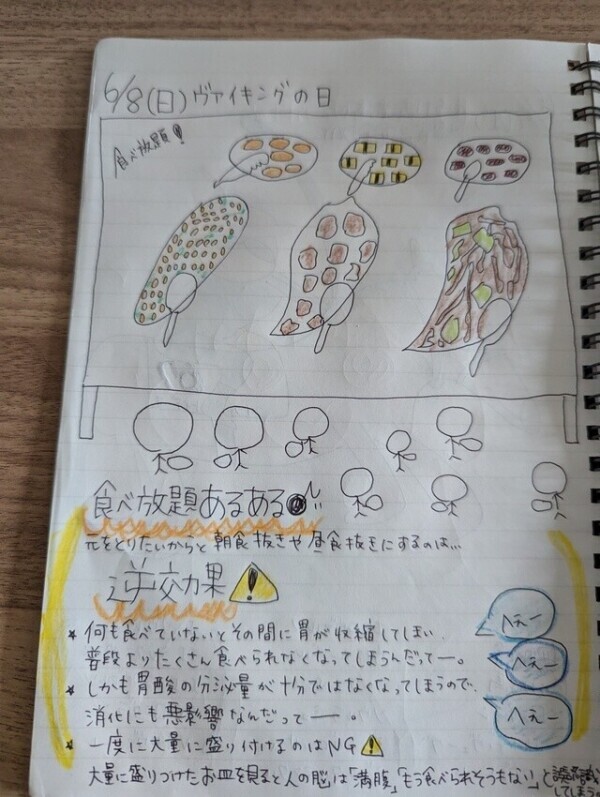 6/8(日)ヴァイキングの日
食べ放題!
食べ放題あるある
元をとりたいからと朝食抜きや昼食抜きにするのは…
逆効果
★何も食べていないとその間に胃が収縮してしまい
普段よりたくさん食べられなくなってしまうんだってー。
へぇー
★しかも胃酸の分泌量が十分ではなくなってしまうので、
へぇー
消化にも悪影響なんだってー。
へぇー
★一度に大量に盛り付けるのはNG
大量に盛りつけたお皿を見ると人の脳は「満腹」「もう食べられそうもない」と誤認識
してしまう。